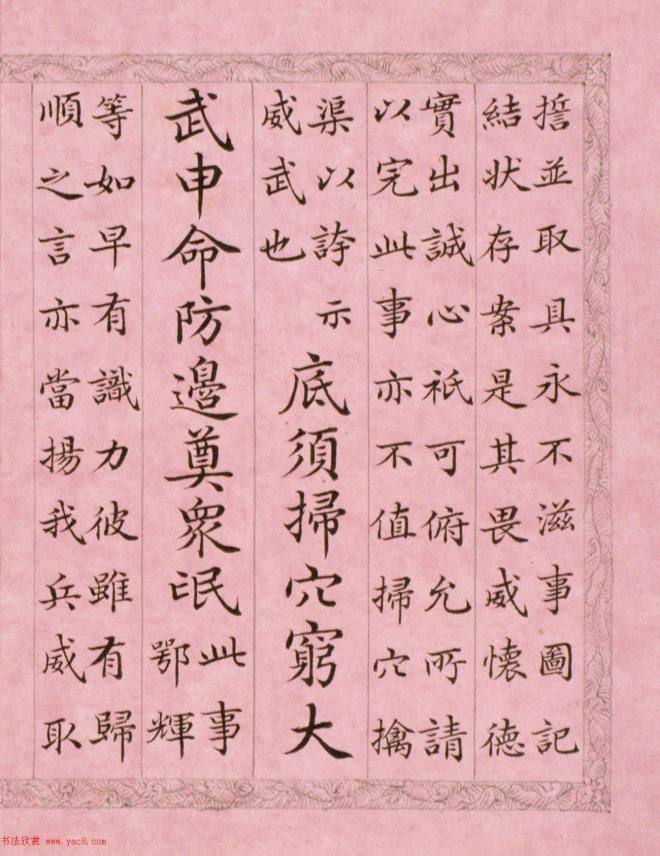 誓並取具永不滋事圖記
結狀存案是其畏威懷德
實出誠心祇可俯允所請
以完此事亦不值掃穴擒
渠以誇示
威武也
底須掃穴窮大
武申命防邊奠衆氓
此事
鄂輝
等如早有識力彼雖有歸
順之言亦當揚我兵威取
书法欣赏 www.yac8.com